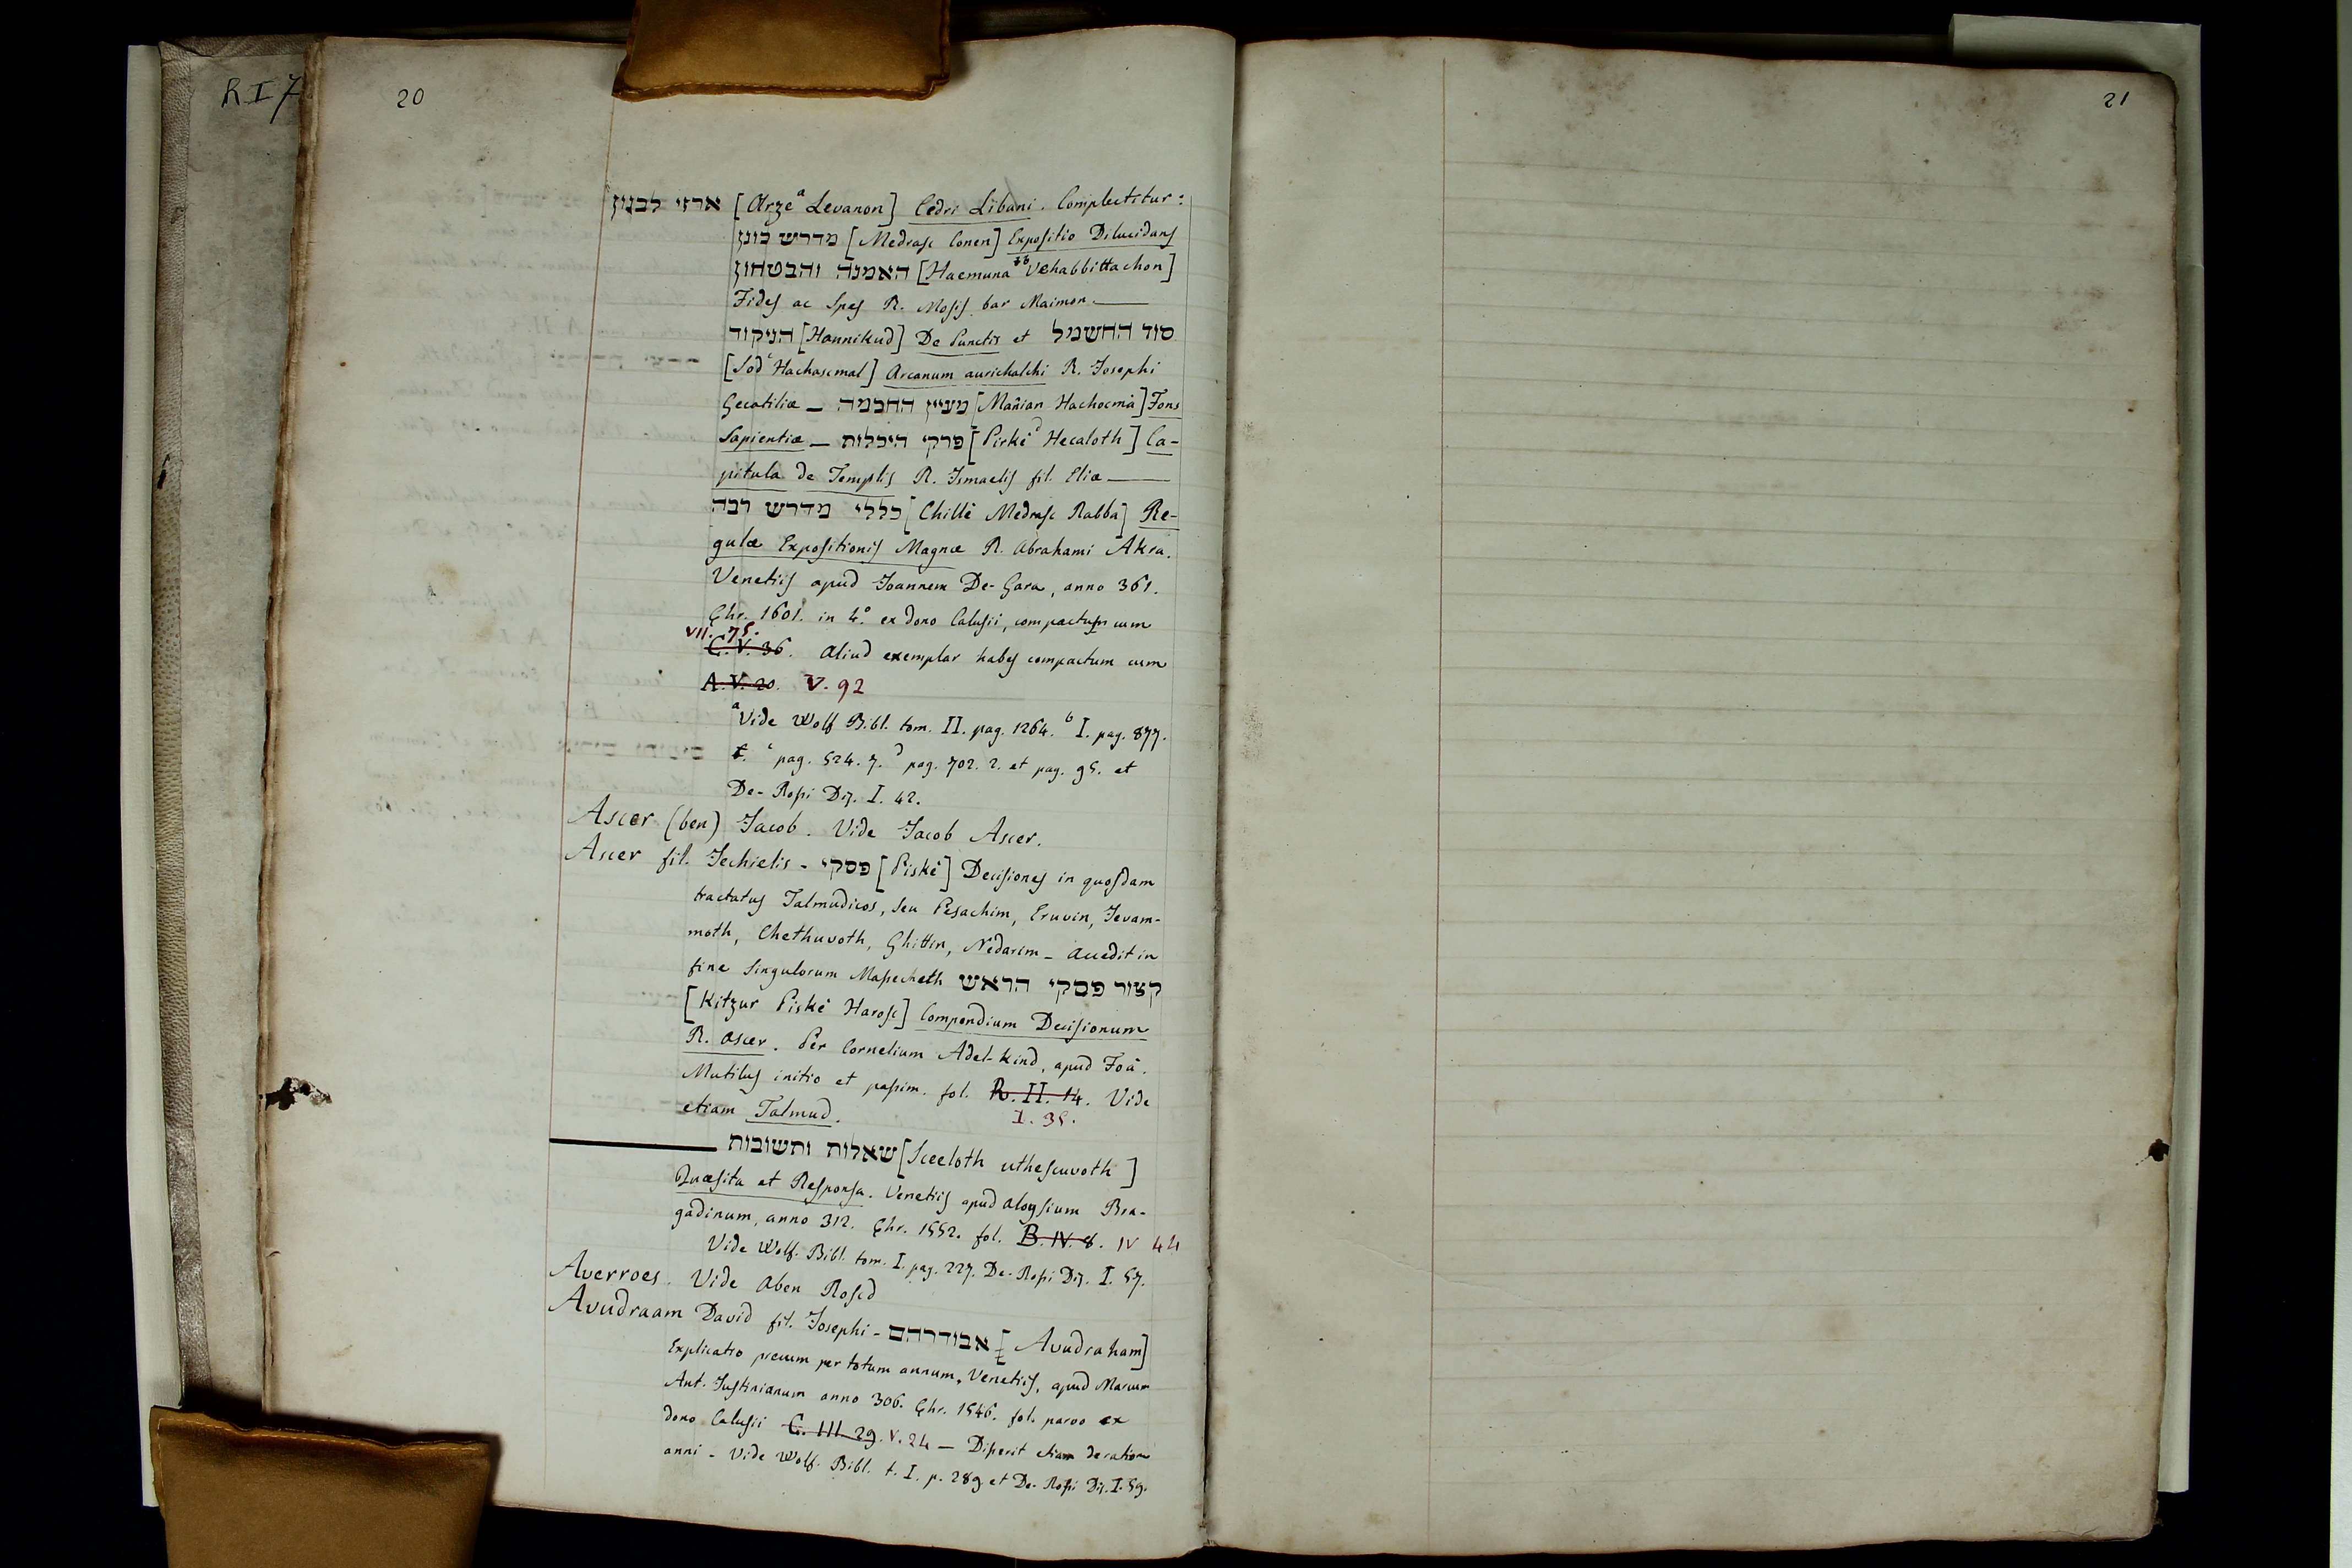 R I 7
20
21
ארזי לבנון [Arzeᵃ Levanon] Cedri Libani. Complectitur:
מדרש כונן [Medrasc Conen] Expositio Dilucidans
האמנה והבטחון [Haemunaᵇ Vehabbittachon]
Fides ac Spes R. Mosis bar Maimon.—
הניקוד [Hannikud] De Punctis et סוד החשמל
[Sodᶜ Hachascmal] Arcanum aurichalchi R. Josephi
Gecatiliæ — מעיין החכמה [Maňian Hachocmà] Fons
Sapientiæ — פרקי היכלות [Pirkèᵈ Hecaloth] Ca-
pitula de Templis R. Ismaelis fil. Eliæ —
כללי מדרש רבה [Chillè Medrasc Rabba] Re-
gulæ Expositionis Magnæ R. Abrahami Akra.
Venetiis apud Joannem De-Gara, anno 361.
Chr. 1601. in 4.º ex dono Calusii, compactum cum
VII. 75.
C. V. 36. Aliud exemplar habes compactum cum
A. V. 20. V. 92
ᵃVide Wolf Bibl. tom. II. pag. 1264. ᵇ I. pag. 877.
ᶜ pag. 524. 7. ᵈ pag. 702. 2. et pag. 95. et
De-Rossi Diz. I. 42.
Ascer (ben) Jacob. Vide Jacob Ascer.
Ascer fil. Jechielis - פסקי [Piskè] Decisiones in quosdam
tractatus Talmudicos, seu Pesachim, Eruvin, Jevam-
moth, Chethuvoth, Ghittin, Nedarim — Accedit in
fine singulorum Massecheth קצור פסקי הראש
[Kitzur Piskè Harosc] Compendium Decisionum
R. Ascer. Per Cornelium Adel-Kind, apud Foà.
Mutilus initio et passim. fol. R. II. 14. Vide
etiam Talmud. I. 35.
— שאלות ותשובות [Sceeloth uthescuvoth]
Quæsita et Responsa. Venetiis apud Aloysium Bra-
gadinum, anno 312. Chr. 1552. fol. B. IV. 8. IV 44
Vide Wolf. Bibl. tom. I. pag. 227. De-Rossi Diz. I. 57.
Averroes. Vide Aben Roscd
Avudraam David fil. Josephi - אבודרהם [Avudraham]
Explicatio precum per totum annum. Venetiis, apud Marcum
Ant. Justinianum anno 306. Chr. 1546. fol. parvo ex
dono Calusii C. III. 29. V. 24 — Disserit etiam de ratione
anni - Vide Wolf. Bibl. t. I. p. 289 et De-Rossi Diz. I. 59.